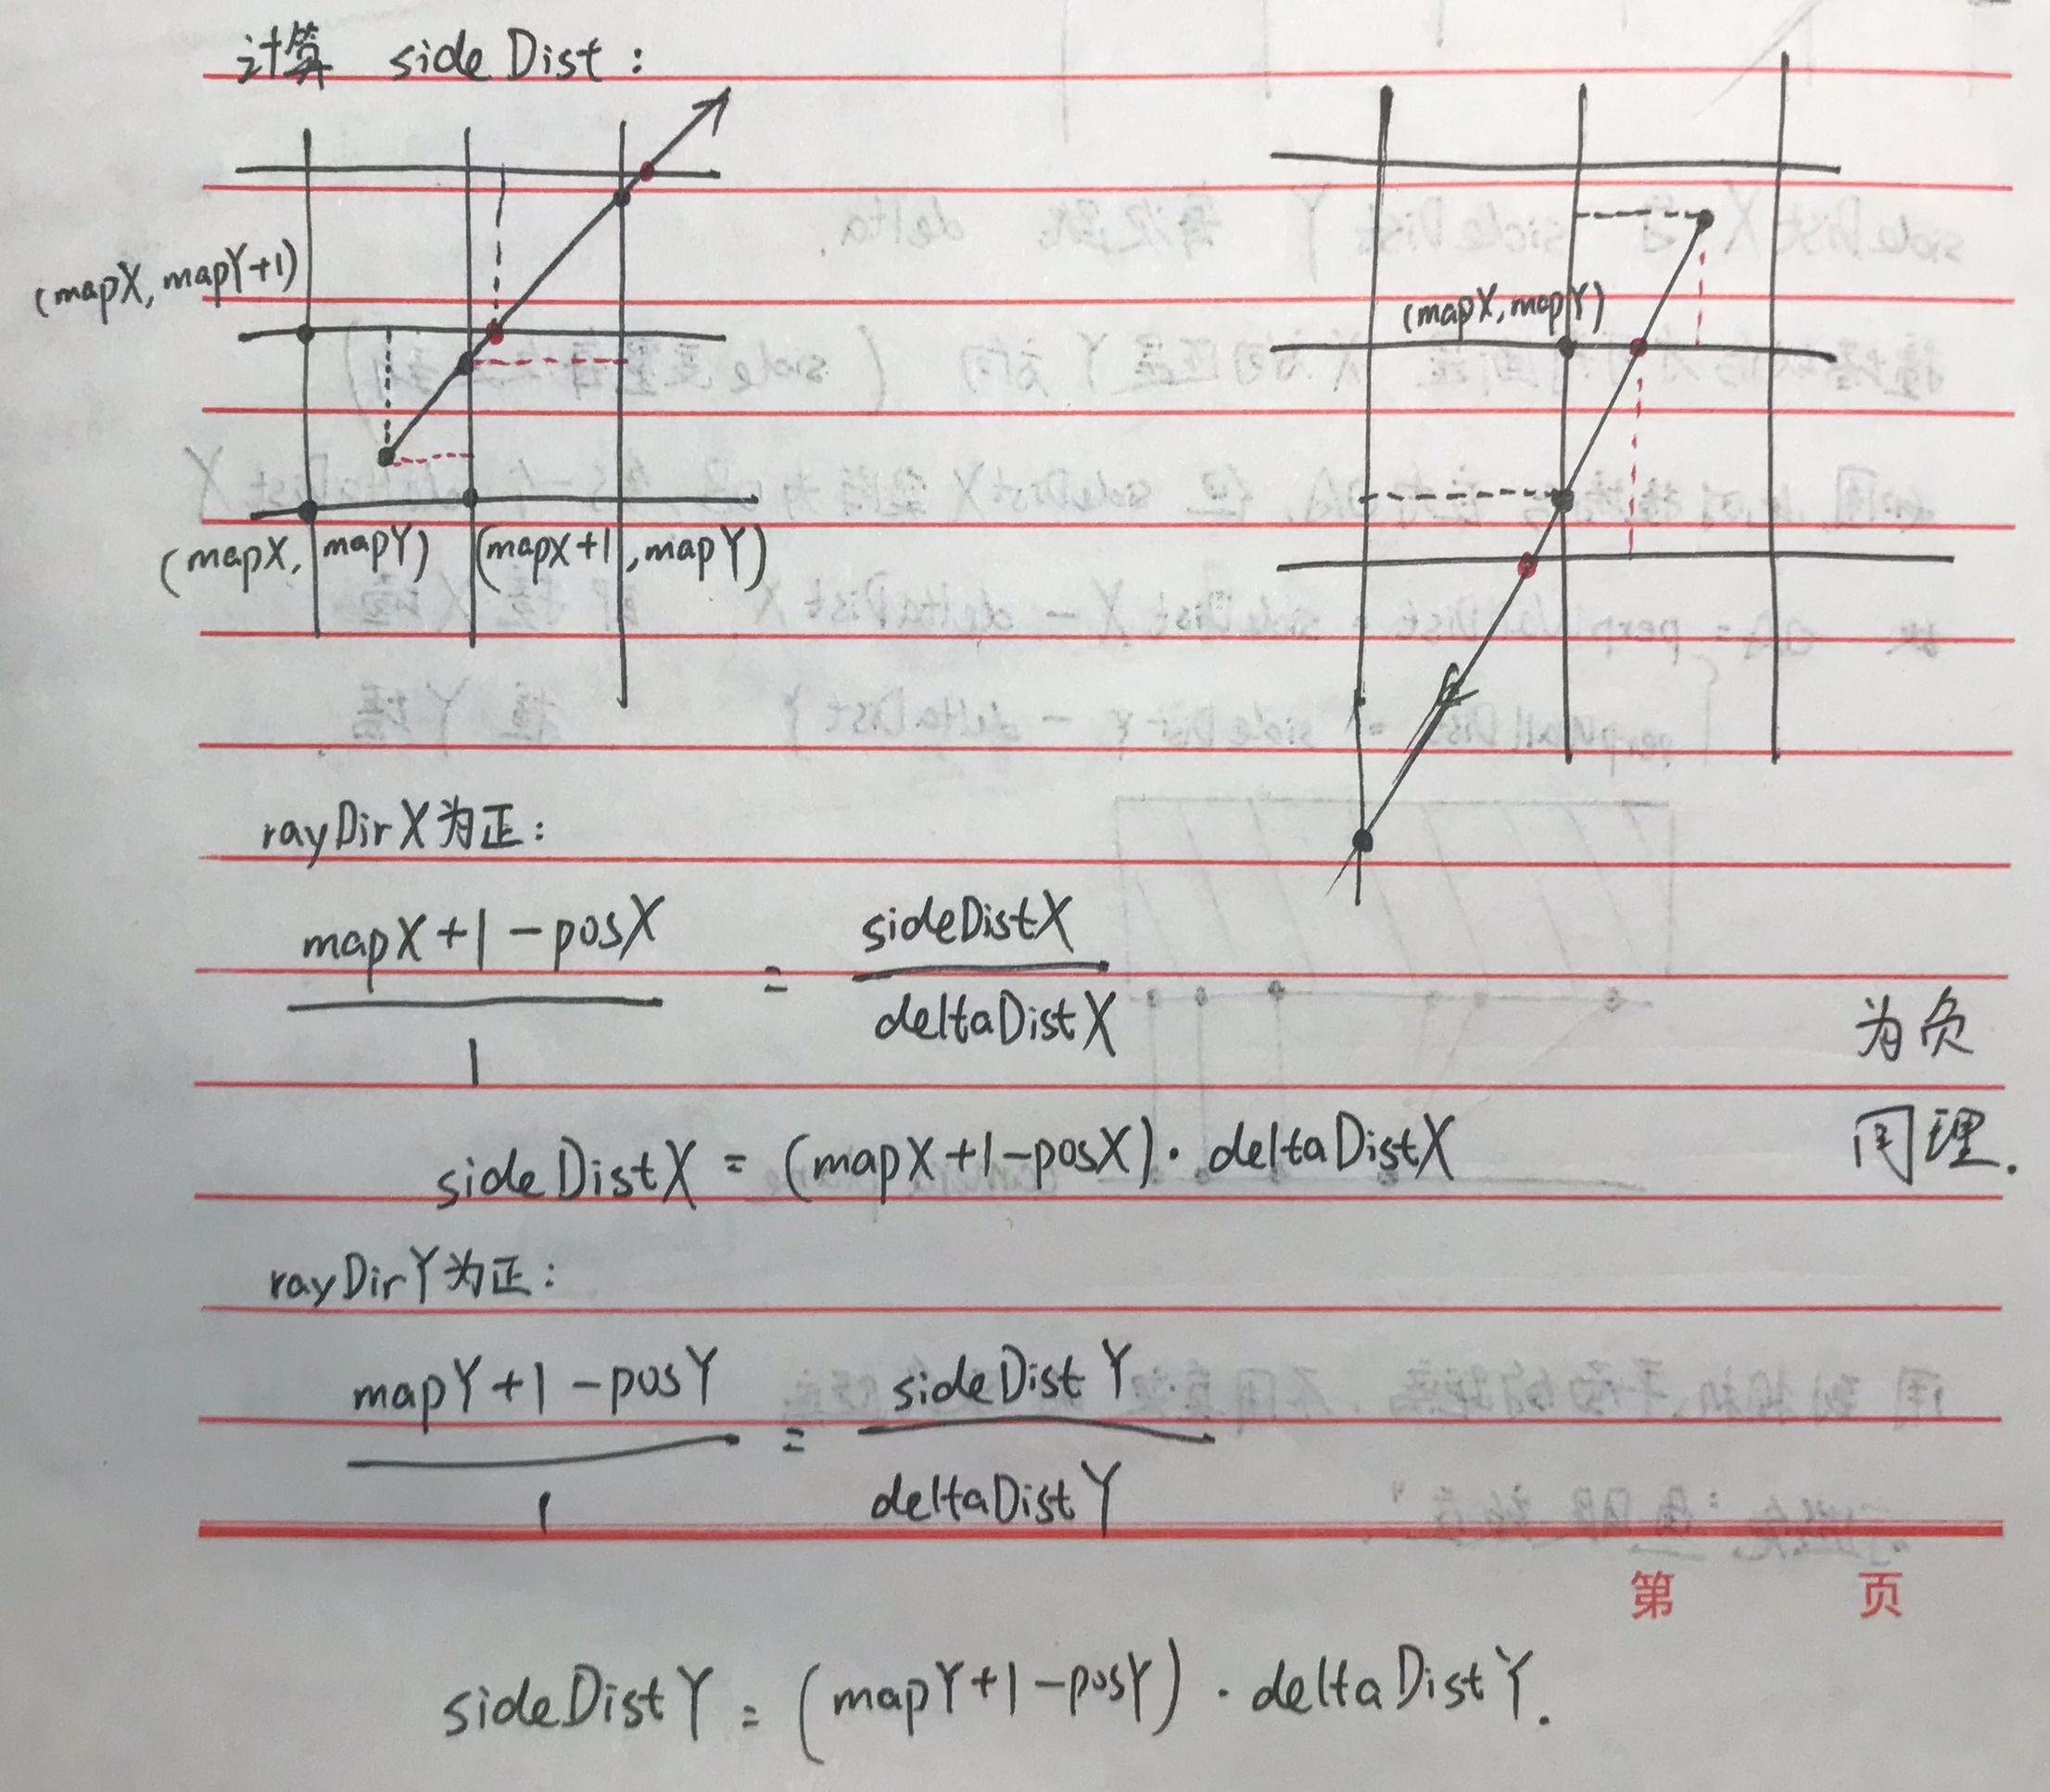 计算 sideDist:
(mapX, mapY+1)
(mapX, mapY) (mapX+1, mapY)
(mapX, mapY)
rayDirX为正:
mapX+1-posX
1
=
sideDistX
deltaDistX
sideDistX = (mapX+1-posX)·deltaDistX
为负
同理.
rayDirY为正:
mapY+1-posY
1
=
sideDistY
deltaDistY
第 页
sideDistY = (mapY+1-posY)·deltaDistY.